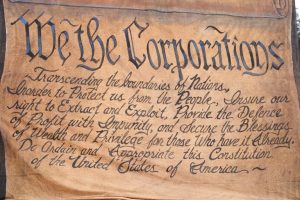 We the Corporations
Transcending the boundaries of Nations,
Inorder to Protect us from the People, Insure our
right to Extract and Exploit, Provide the Defence
of Profit with Impunity, and Secure the Blessings
of Wealth and Privilege for those Who have it Already.
De Ordain and Appropriate this Constitution
of the United States of America ~